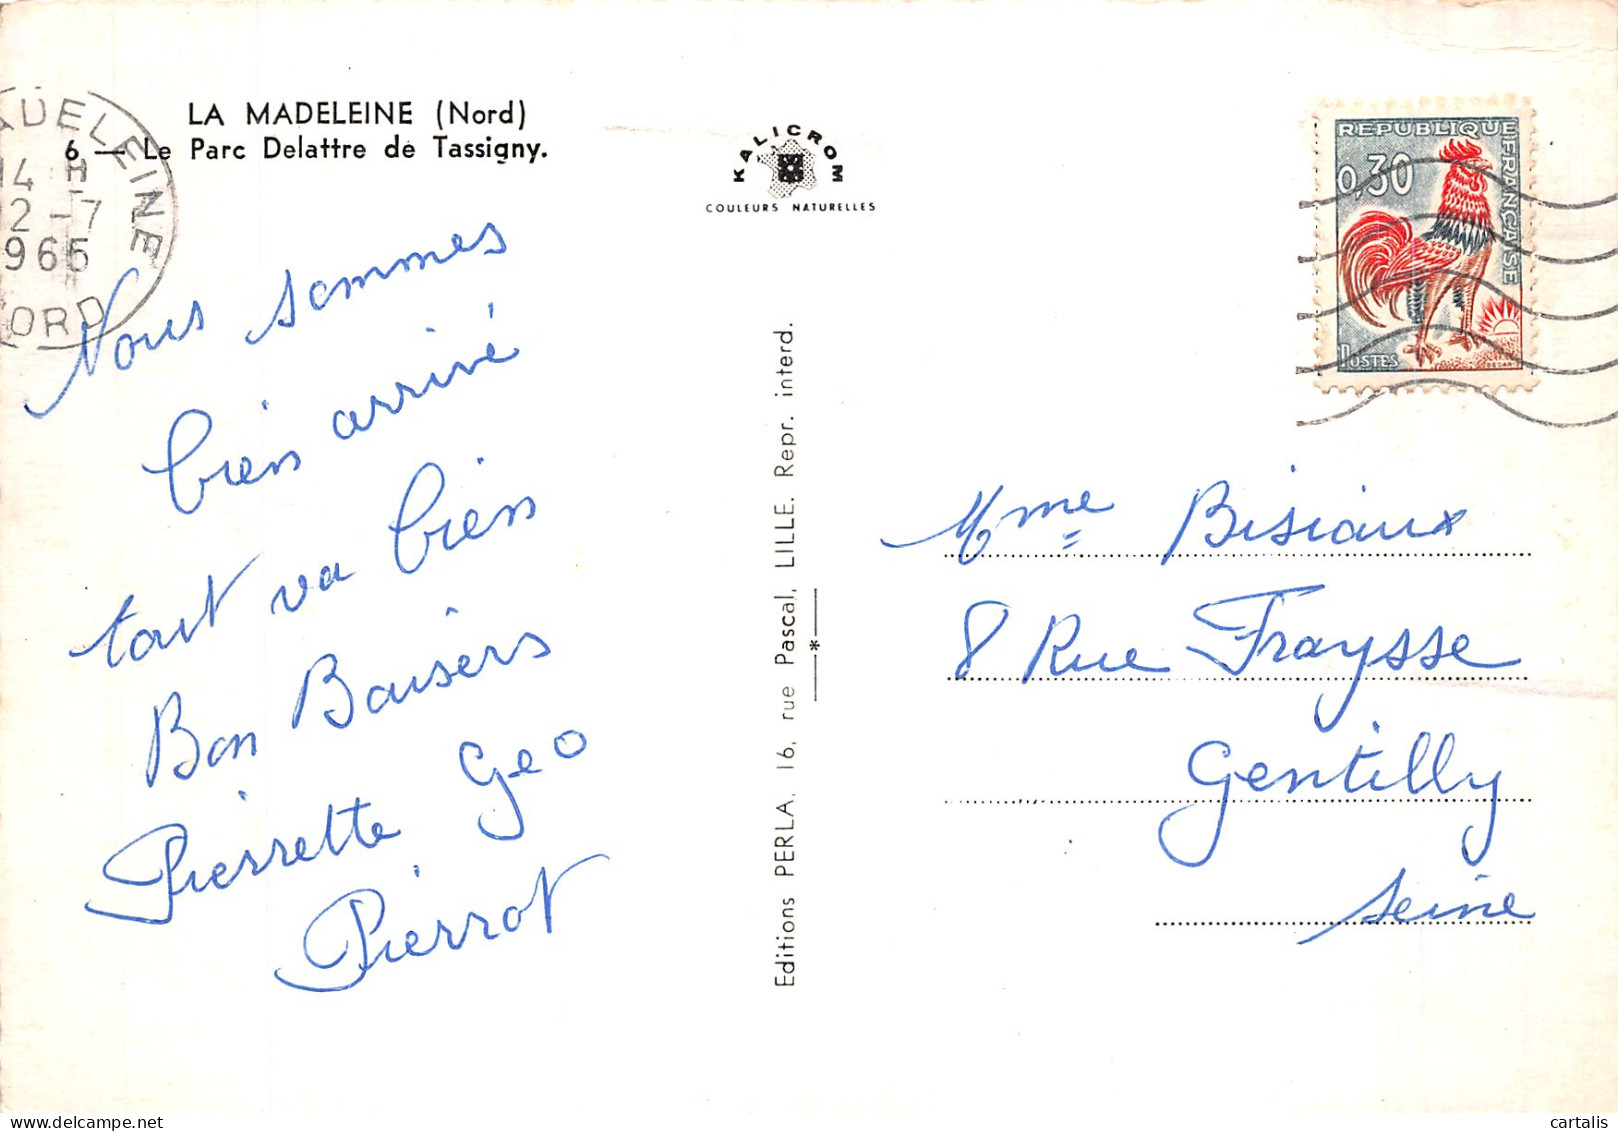 LA MADELEINE (Nord)
6 — Le Parc Delattre de Tassigny.
ADELEINE
14 H
12 -7
1965
NORD
KALICROM
COULEURS NATURELLES
REPUBLIQUE FRANÇAISE
0,30
POSTES
DECARIS
Nous sommes
bien arrivé
tout va bien
Bon Baisers
Pierrette Geo
Pierrot
Editions PERLA, 16, rue Pascal, LILLE. Repr. interd.
Mme Bisiaux
8 Rue Fraysse
Gentilly
Seine
cartalis